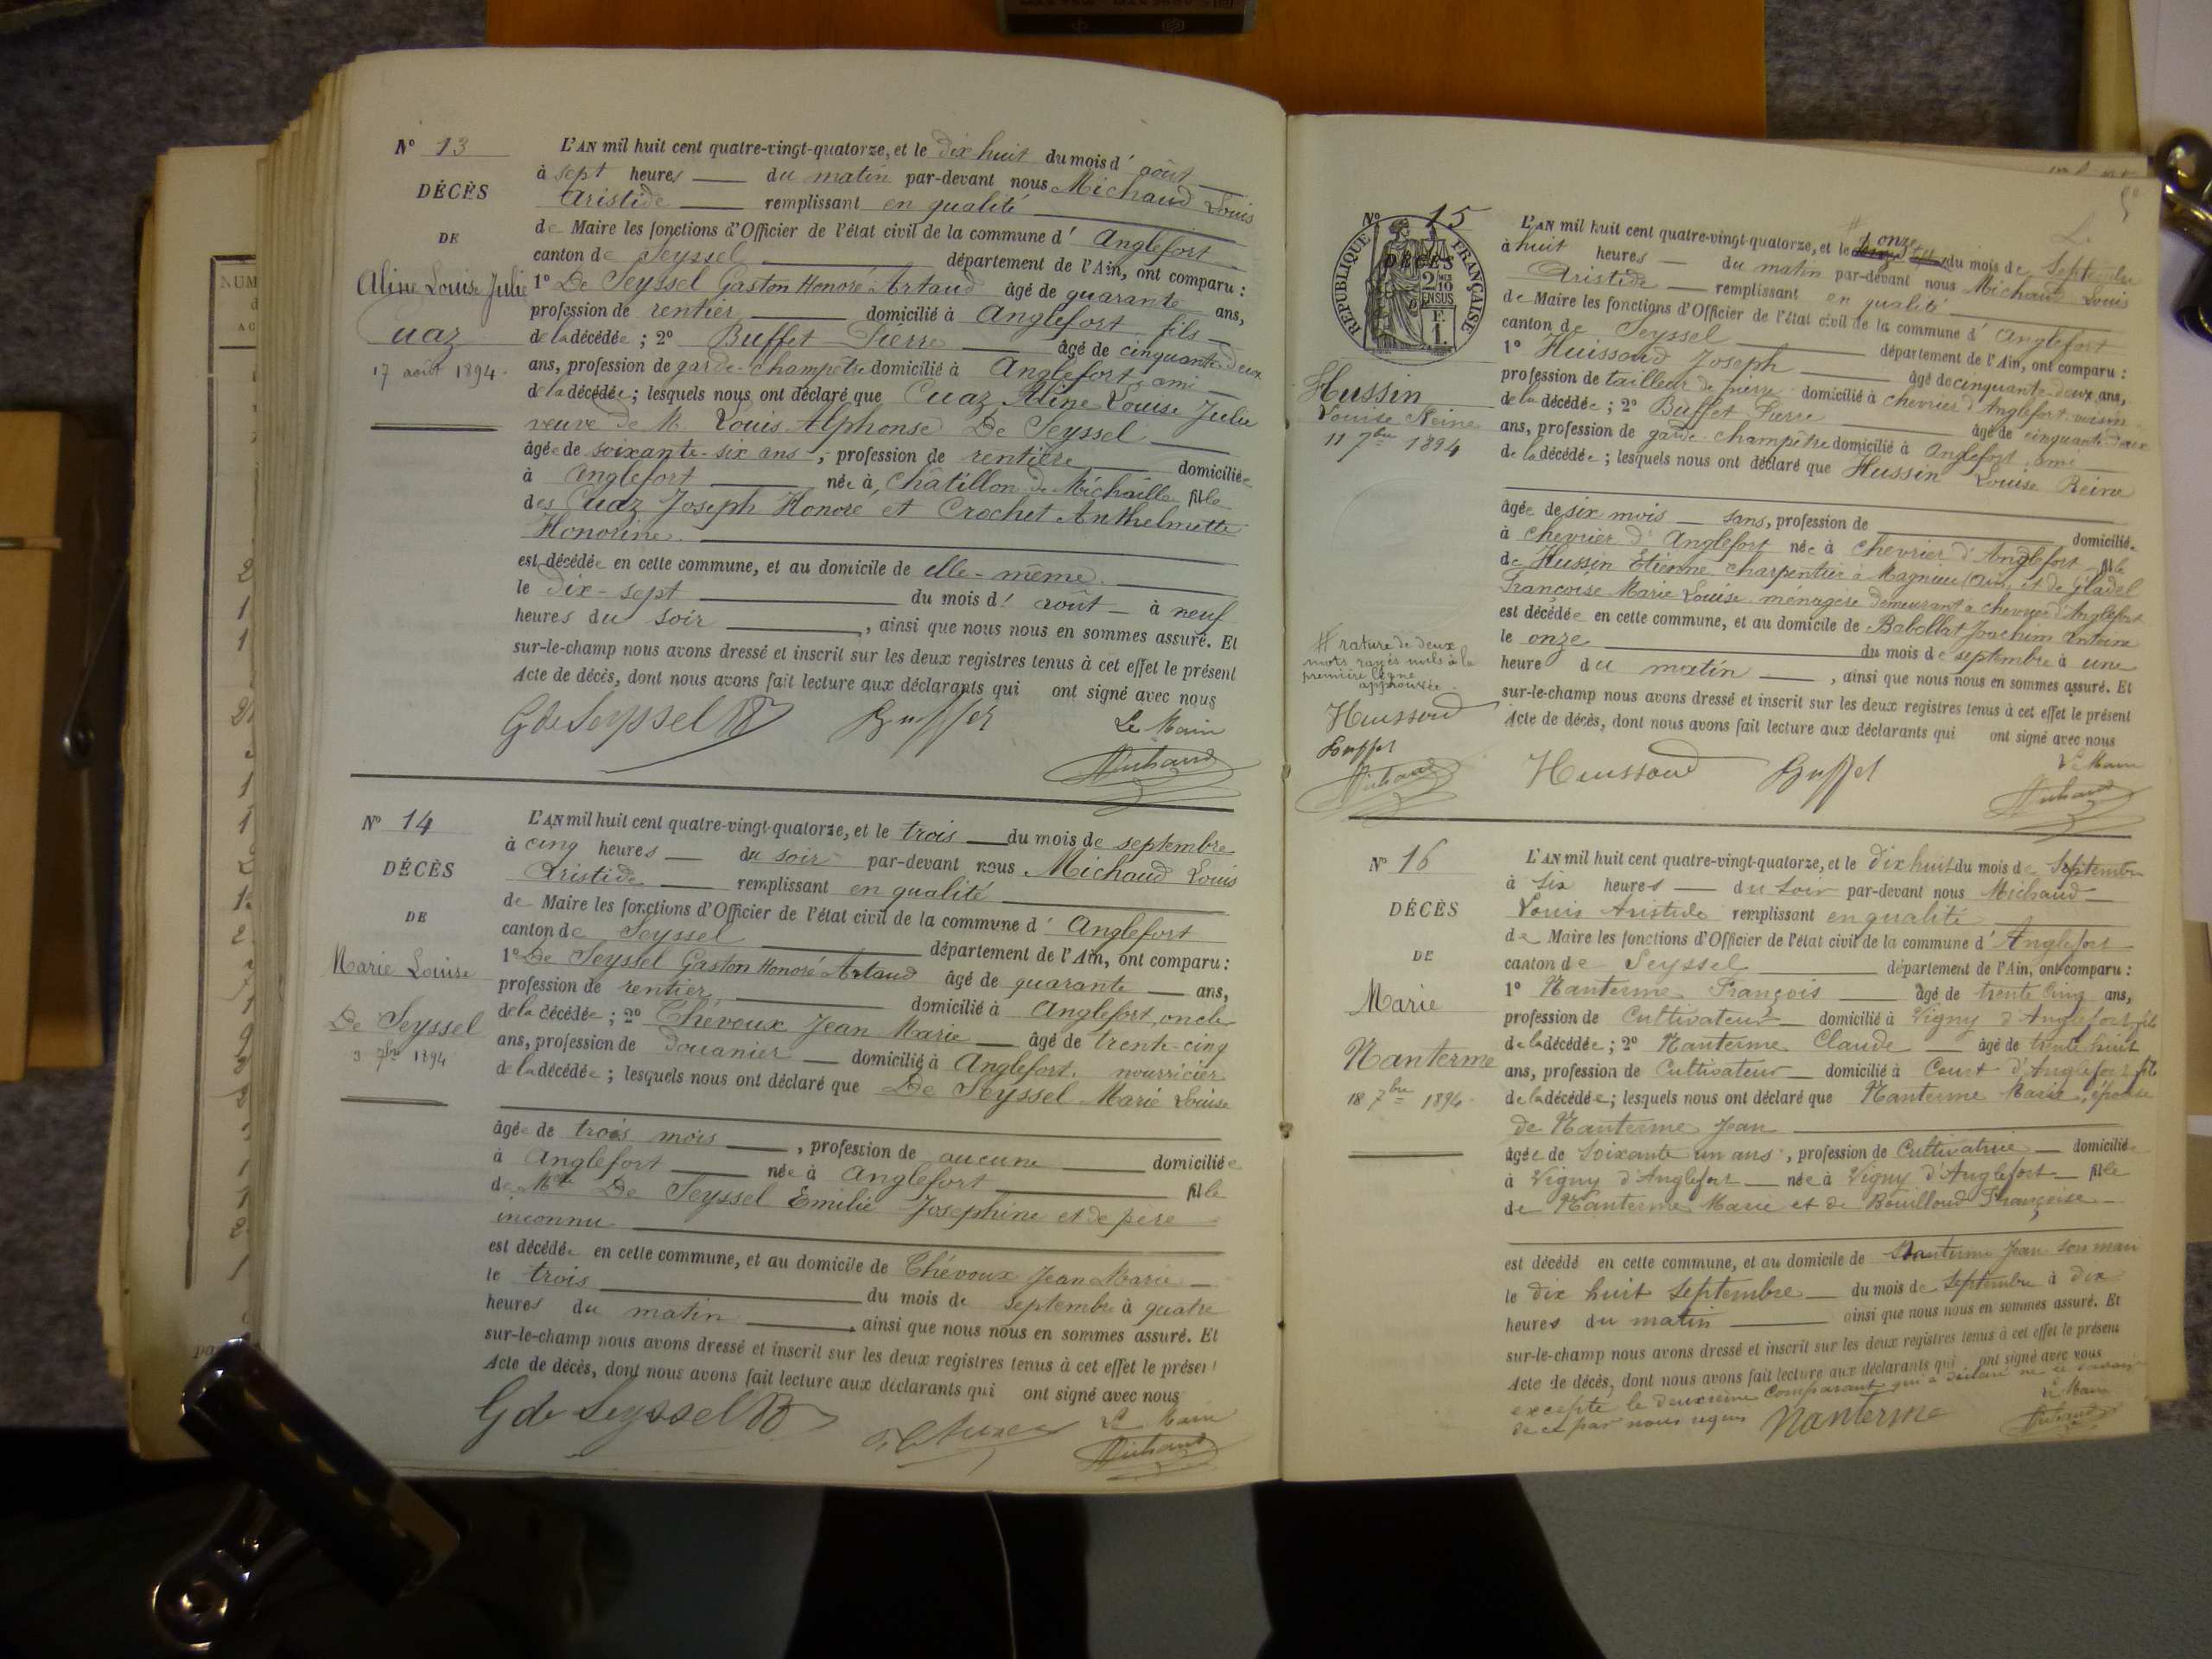 N° 13
DÉCÈS
DE
Aline Louise Julie
Cuaz
17 août 1894.
L'AN mil huit cent quatre-vingt-quatorze, et le dix huit du mois d' août
à sept heures du matin par-devant nous Michaud Louis
Aristide remplissant en qualité
de Maire les fonctions d'Officier de l'état civil de la commune d' Anglefort
canton de Seyssel département de l'Ain, ont comparu :
1° De Seyssel Gaston Honoré Artaud âgé de quarante ans,
profession de rentier domicilié à Anglefort fils
de la décédée ; 2° Buffet Pierre âgé de cinquante-deux
ans, profession de garde-champêtre domicilié à Anglefort, ami
de la décédée ; lesquels nous ont déclaré que Cuaz Aline Louise Julie
veuve de M. Louis Alphonse De Seyssel
âgée de soixante-six ans, profession de rentière domiciliée
à Anglefort née à Châtillon de Michaille fille
des Cuaz Joseph Honoré et Crochet Anthelmette
Honorine.
est décédée en cette commune, et au domicile de elle-même.
le dix-sept du mois d' août à neuf
heures du soir, ainsi que nous nous en sommes assuré. Et
sur-le-champ nous avons dressé et inscrit sur les deux registres tenus à cet effet le présent
Acte de décès, dont nous avons fait lecture aux déclarants qui ont signé avec nous
G de Seyssel Buffet Le Maire
Michaud
N° 14
DÉCÈS
DE
Marie Louise
De Seyssel
3 7bre 1894
L'AN mil huit cent quatre-vingt-quatorze, et le trois du mois de septembre
à cinq heures du soir par-devant nous Michaud Louis
Aristide remplissant en qualité
de Maire les fonctions d'Officier de l'état civil de la commune d' Anglefort
canton de Seyssel département de l'Ain, ont comparu :
1° De Seyssel Gaston Honoré Artaud âgé de quarante ans,
profession de rentier, domicilié à Anglefort, oncle
de la décédée ; 2° Chévoux Jean Marie âgé de trente-cinq
ans, profession de douanier domicilié à Anglefort, nourricier
de la décédée ; lesquels nous ont déclaré que De Seyssel Marie Louise
âgée de trois mois, profession de aucune domiciliée
à Anglefort née à Anglefort fille
de Mlle De Seyssel Emilie Josephine et de père
inconnu
est décédée en cette commune, et au domicile de Chévoux Jean Marie
le trois du mois de septembre à quatre
heures du matin, ainsi que nous nous en sommes assuré. Et
sur-le-champ nous avons dressé et inscrit sur les deux registres tenus à cet effet le présent
Acte de décès, dont nous avons fait lecture aux déclarants qui ont signé avec nous
G de Seyssel Le Maire
Michaud
N° 15
RÉPUBLIQUE FRANÇAISE
DÉCÈS
2/10 EN SUS
F. 1.
Hussin
Louise Reine
11 7bre 1894
# rature de deux
mots rayés nuls à la
première ligne
approuvée
Huissoud
Buffet
Michaud
L'AN mil huit cent quatre-vingt-quatorze, et le # onze du mois de Septembre
à huit heures du matin par-devant nous Michaud Louis
Aristide remplissant en qualité
de Maire les fonctions d'Officier de l'état civil de la commune d' Anglefort
canton de Seyssel département de l'Ain, ont comparu :
1° Huissoud Joseph âgé de cinquante-deux ans,
profession de tailleur de pierre domicilié à Chevrier d'Anglefort voisin
de la décédée ; 2° Buffet Pierre âgé de cinquante-deux
ans, profession de garde-champêtre domicilié à Anglefort, ami
de la décédée ; lesquels nous ont déclaré que Hussin Louise Reine
âgée de six mois sans, profession de domiciliée
à Chevrier d'Anglefort née à Chevrier d'Anglefort fille
de Hussin Etienne, charpentier à Magnieu (Ain) et de Gladel
Françoise Marie Louise ménagère demeurant à Chevrier d'Anglefort
est décédée en cette commune, et au domicile de Babollat Joachim Antoine
le onze du mois de septembre à une
heure du matin, ainsi que nous nous en sommes assuré. Et
sur-le-champ nous avons dressé et inscrit sur les deux registres tenus à cet effet le présent
Acte de décès, dont nous avons fait lecture aux déclarants qui ont signé avec nous
Huissoud Buffet Le Maire
Michaud
N° 16
DÉCÈS
DE
Marie
Nanterme
18 7bre 1894.
L'AN mil huit cent quatre-vingt-quatorze, et le dix huit du mois de Septembre
à six heures du soir par-devant nous Michaud
Louis Aristide remplissant en qualité
de Maire les fonctions d'Officier de l'état civil de la commune d' Anglefort
canton de Seyssel département de l'Ain, ont comparu :
1° Nanterme François âgé de trente cinq ans,
profession de Cultivateur domicilié à Vigny d'Anglefort fils
de la décédée ; 2° Nanterme Claude âgé de trente huit
ans, profession de Cultivateur domicilié à d'Anglefort fils
de la décédée ; lesquels nous ont déclaré que Nanterme Marie, épouse
de Nanterme Jean
âgée de soixante un ans, profession de Cultivatrice domiciliée
à Vigny d'Anglefort née à Vigny d'Anglefort fille
de Nanterme Marie et de Bouilloud Françoise
est décédé en cette commune, et au domicile de Nanterme Jean son mari
le dix huit Septembre du mois de Septembre à dix
heures du matin ainsi que nous nous en sommes assuré. Et
sur-le-champ nous avons dressé et inscrit sur les deux registres tenus à cet effet le présent
Acte de décès, dont nous avons fait lecture aux déclarants qui ont signé avec nous
excepté le deuxième comparant qui a déclaré ne le savoir
de ce par nous requis Nanterme Le Maire
Michaud